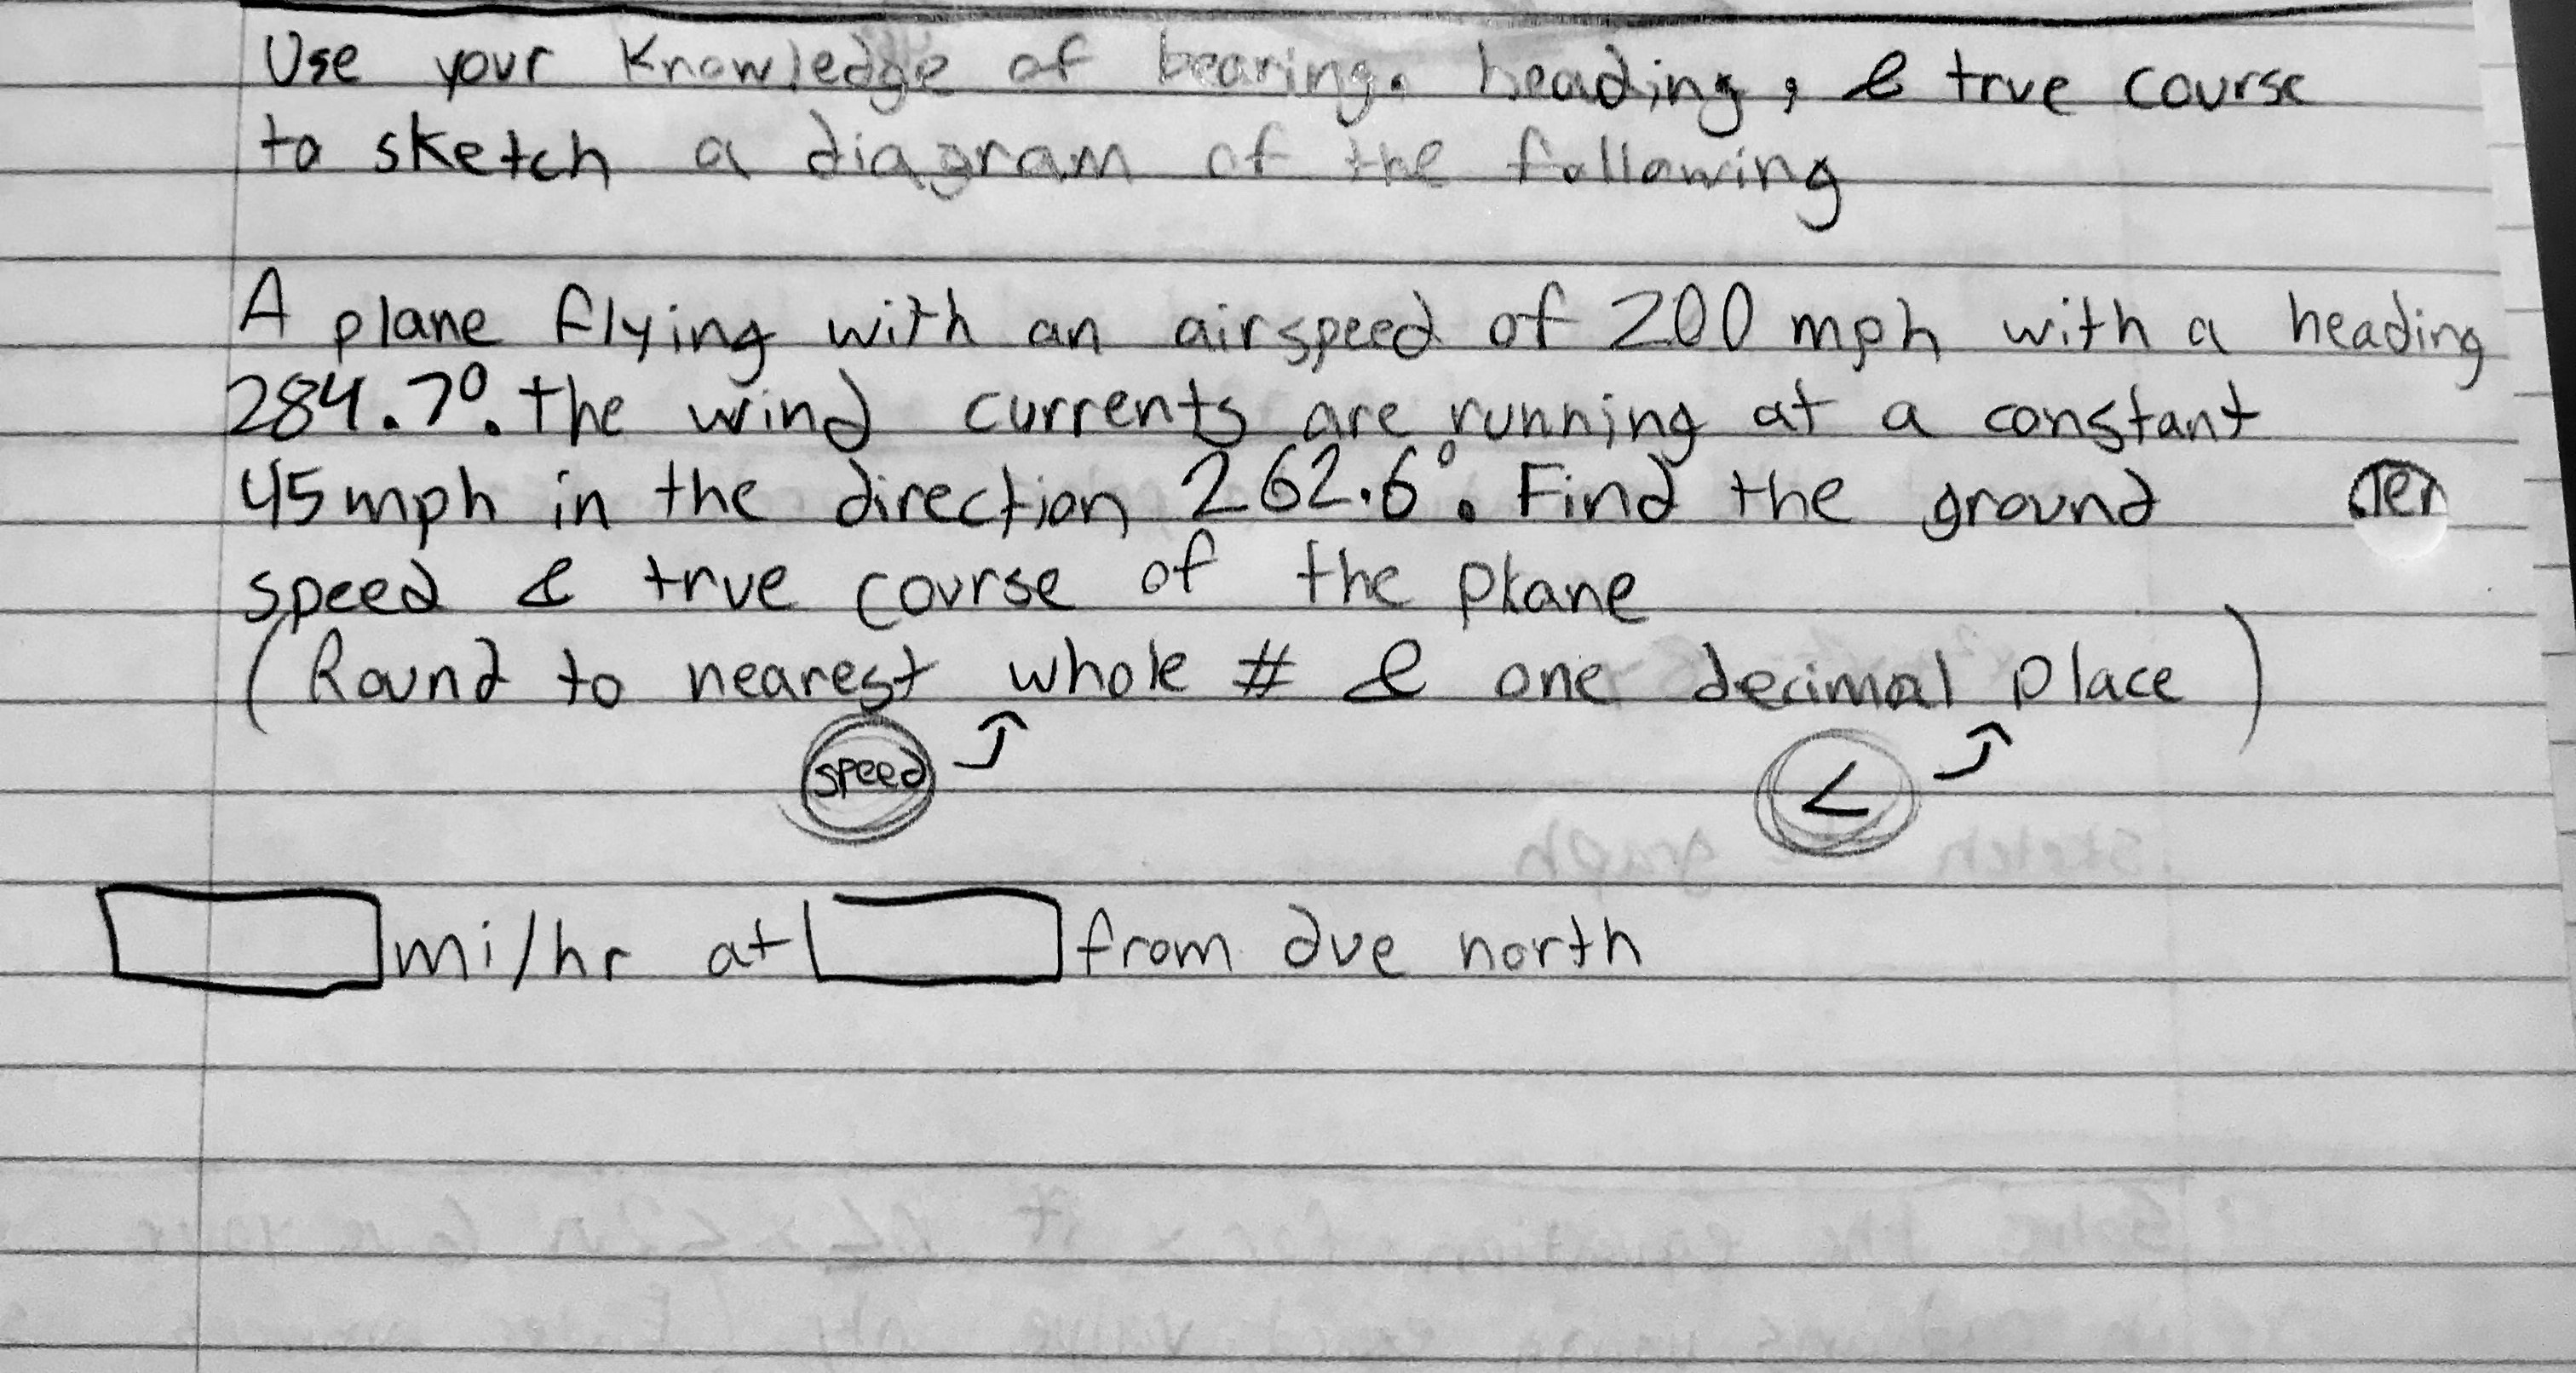 Use your Knowledge of bearing, heading, & true course
to sketch a diagram of the following
A plane flying with an airspeed of 200 mph with a heading
284.7°. the wind currents are running at a constant
45 mph in the direction 262.6°. Find the ground
speed & true course of the plane
(Round to nearest whole # & one decimal place)
speed
∠
mi/hr at from due north